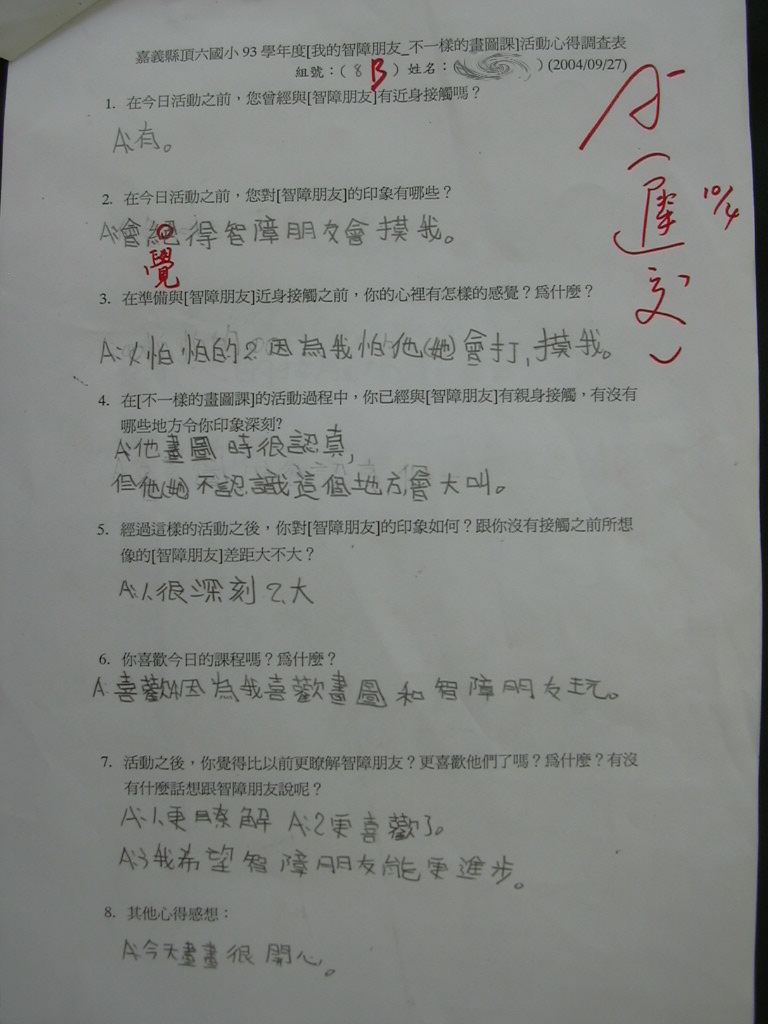 嘉義縣頂六國小93學年度[我的智障朋友_不一樣的畫圖課]活動心得調查表
組號：( 8 B ) 姓名：( ) (2004/09/27)
1. 在今日活動之前，您曾經與[智障朋友]有近身接觸嗎？
A:有。
2. 在今日活動之前，您對[智障朋友]的印象有哪些？
A:會絕得智障朋友會摸我。
覺
3. 在準備與[智障朋友]近身接觸之前，你的心裡有怎樣的感覺？為什麼？
A:1.怕怕的2.因為我怕他(她)會打,摸我。
4. 在[不一樣的畫圖課]的活動過程中，你已經與[智障朋友]有親身接觸，有沒有
哪些地方令你印象深刻?
A:他畫圖時很認真,
但他(她)不認識這個地方會大叫。
5. 經過這樣的活動之後，你對[智障朋友]的印象如何？跟你沒有接觸之前所想
像的[智障朋友]差距大不大？
A:1.很深刻 2.大
6. 你喜歡今日的課程嗎？為什麼？
A:喜歡A:因為我喜歡畫圖和智障朋友玩。
7. 活動之後，你覺得比以前更瞭解智障朋友？更喜歡他們了嗎？為什麼？有沒
有什麼話想跟智障朋友說呢？
A:1.更瞭解 A:2更喜歡了。
A:3我希望智障朋友能更進步。
8. 其他心得感想：
A:今天畫畫很開心。
(遲交)
10/4